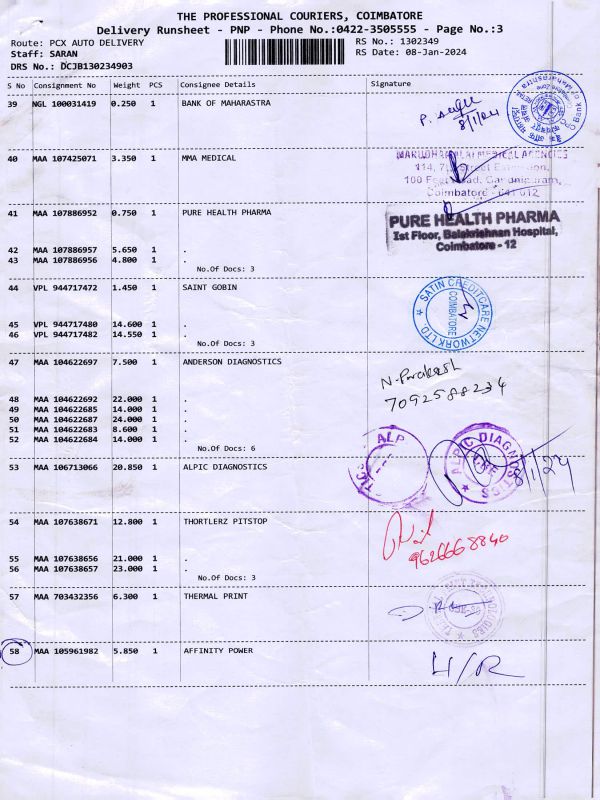 THE PROFESSIONAL COURIERS, COIMBATORE
Delivery Runsheet - PNP - Phone No.:0422-3505555 - Page No.:3
Route: PCX AUTO DELIVERY RS No.: 1302349
Staff: SARAN RS Date: 08-Jan-2024
DRS No.: DCJB130234903
S No Consignment No Weight PCS Consignee Details Signature
39 NGL 100031419 0.250 1 BANK OF MAHARASTRA
8/1/24
Bank of Maharashtra
40 MAA 107425071 3.350 1 MMA MEDICAL
MARUDHAMALAI MEDICAL AGENCIES
114, 7th Street Extension,
100 Feet Road, Gandhipuram,
Coimbatore - 641 012
41 MAA 107886952 0.750 1 PURE HEALTH PHARMA
PURE HEALTH PHARMA
Ist Floor, Balakrishnan Hospital,
Coimbatore - 12
42 MAA 107886957 5.650 1 .
43 MAA 107886956 4.800 1 .
No.Of Docs: 3
44 VPL 944717472 1.450 1 SAINT GOBIN
SATIN CREDITCARE NETWORK LTD.
COIMBATORE
45 VPL 944717480 14.600 1 .
46 VPL 944717482 14.550 1 .
No.Of Docs: 3
47 MAA 104622697 7.500 1 ANDERSON DIAGNOSTICS
N. Prakash
7092588234
48 MAA 104622692 22.000 1 .
49 MAA 104622685 14.000 1 .
50 MAA 104622687 24.000 1 .
51 MAA 104622683 8.600 1 .
52 MAA 104622684 14.000 1 .
No.Of Docs: 6
53 MAA 106713066 20.850 1 ALPIC DIAGNOSTICS
ALP
ALPIC DIAGNOSTICS
CBE
8/1/24
54 MAA 107638671 12.800 1 THORTLERZ PITSTOP
9626668840
55 MAA 107638656 21.000 1 .
56 MAA 107638657 23.000 1 .
No.Of Docs: 3
57 MAA 703432356 6.300 1 THERMAL PRINT
58 MAA 105961982 5.850 1 AFFINITY POWER
H/R